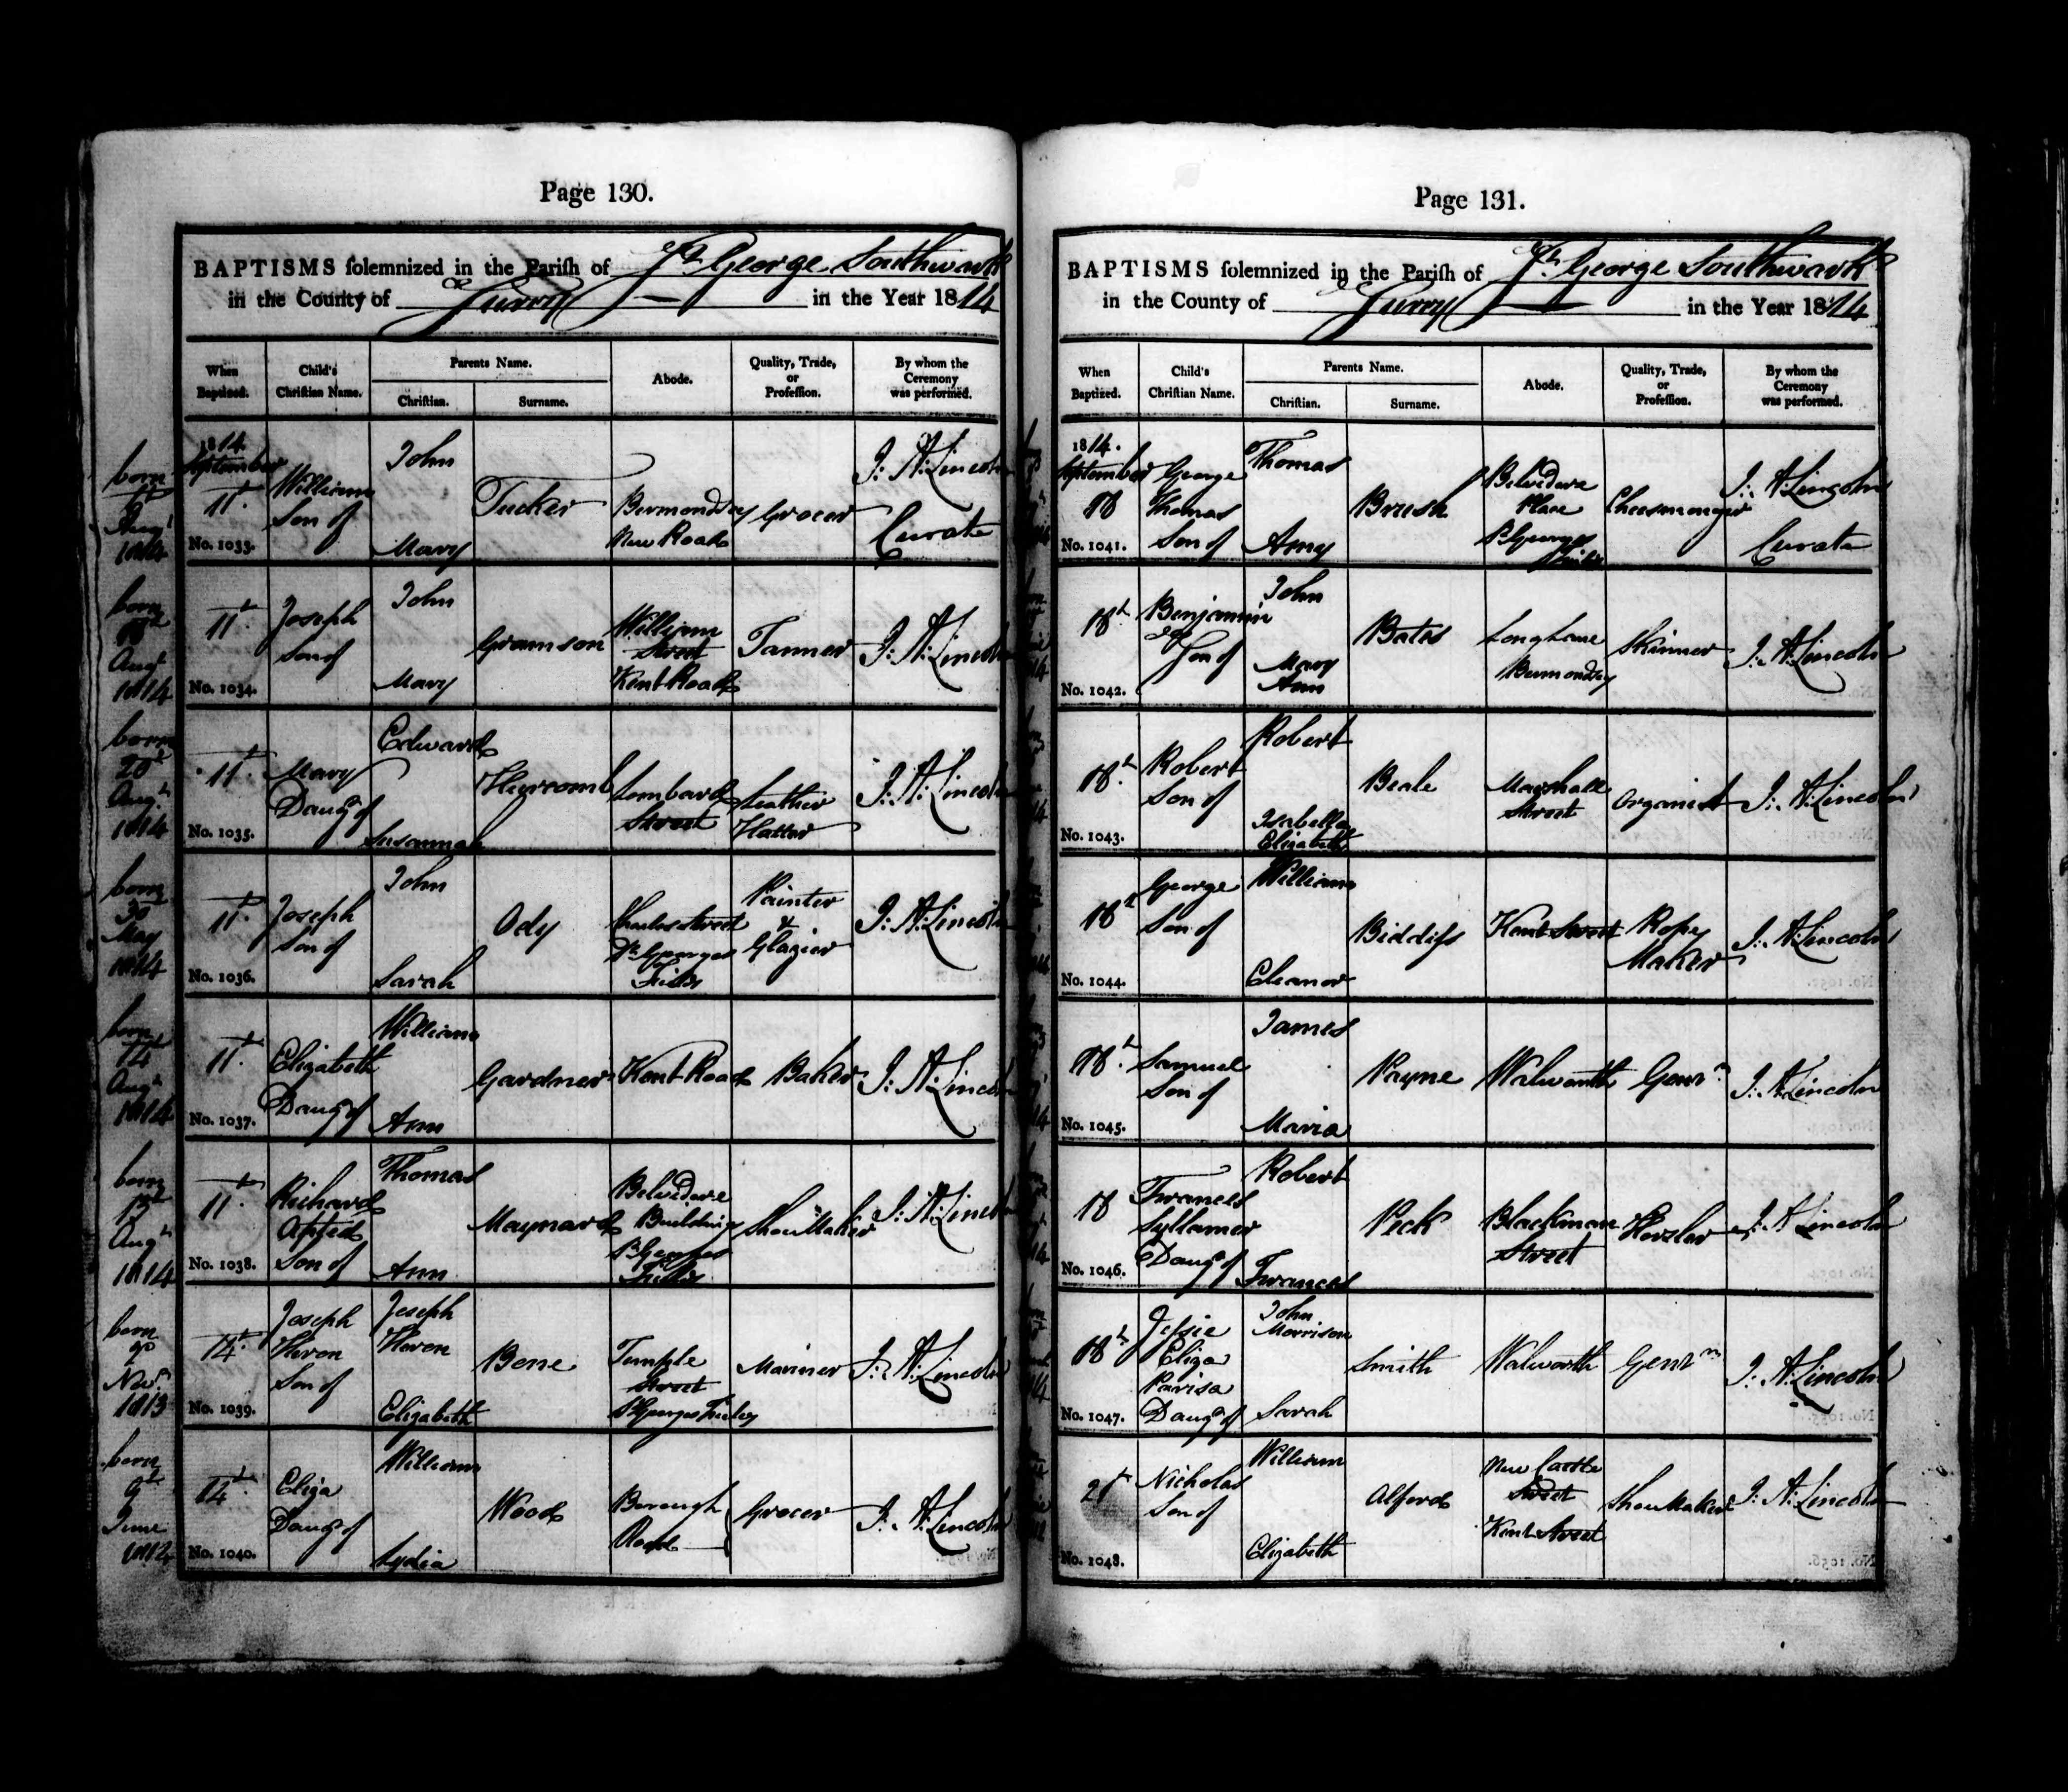 Page 130.
BAPTISMS solemnized in the Parish of St George Southwark
in the County of Surry in the Year 1814
When Baptized. Child's Christian Name. Parents Name. Christian. Surname. Abode. Quality, Trade, or Profession. By whom the Ceremony was performed.
born Augt 1814
1814 September 11th William Son of John Mary Tucker Bermondsey New Road Grocer J. A. Lincoln Curate
No. 1033.
born Augt 1814
11th Joseph Son of John Mary Gramson William Street Kent Road Tanner J. A. Lincoln
No. 1034.
born 20th Augt 1814
11th Mary Daugr of Edward Susannah Lombard Street Leather Hatter J. A. Lincoln
No. 1035.
born 30 May 1814
11th Joseph Son of John Sarah Ody Charles Street St Georges Fields Painter & Glazier J. A. Lincoln
No. 1036.
born 14 Augt 1814
11th Elizabeth Daugr of William Ann Gardner Kent Road Baker J. A. Lincoln
No. 1037.
born Augt 1814
11th Richard Apted Son of Thomas Ann Maynard Belvedere Buildings St Georges Fields Shoe Maker J. A. Lincoln
No. 1038.
born Novr 1813
14th Joseph Heron Son of Joseph Heron Elizabeth Bone Temple Street St Georges Fields Mariner J. A. Lincoln
No. 1039.
born 9th June
14th Eliza Daugr of William Lydia Wood Borough Road Grocer J. A. Lincoln
No. 1040.
Page 131.
BAPTISMS solemnized in the Parish of St George Southwark
in the County of Surry in the Year 1814
When Baptized. Child's Christian Name. Parents Name. Christian. Surname. Abode. Quality, Trade, or Profession. By whom the Ceremony was performed.
1814. September 18 George Thomas Son of Thomas Amy Brush Belvedere Place St Georges Fields Cheesmonger J. A. Lincoln Curate
No. 1041.
18th Benjamin Son of John Mary Ann Bates Long Lane Bermondsey Skinner J. A. Lincoln
No. 1042.
18th Robert Son of Robert Isabella Elizabeth Beale Marshall Street Organist J. A. Lincoln
No. 1043.
18th George Son of William Eleanor Biddiss Kent Street Rope Maker J. A. Lincoln
No. 1044.
18th Samuel Son of James Maria Payne Walworth Gentn J. A. Lincoln
No. 1045.
18 Frances Daugr of Robert Frances Peck Blackman Street J. A. Lincoln
No. 1046.
18th Jessie Eliza Daugr of John Morrison Sarah Smith Walworth Gentn J. A. Lincoln
No. 1047.
21st Nicholas Son of William Elizabeth Alford New Castle Street Kent Street Shoe Maker J. A. Lincoln
No. 1048.